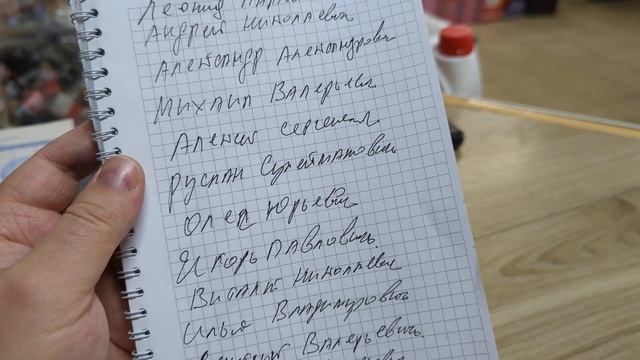 Леонид
Андрей Николаевич
Александр Александрович
Михаил Валерьевич
Алексей Сергеевич
Руслан Сулейманович
Олег Юрьевич
Игорь Павлович
Виталий Николаевич
Илья Владимирович
Валерьевич